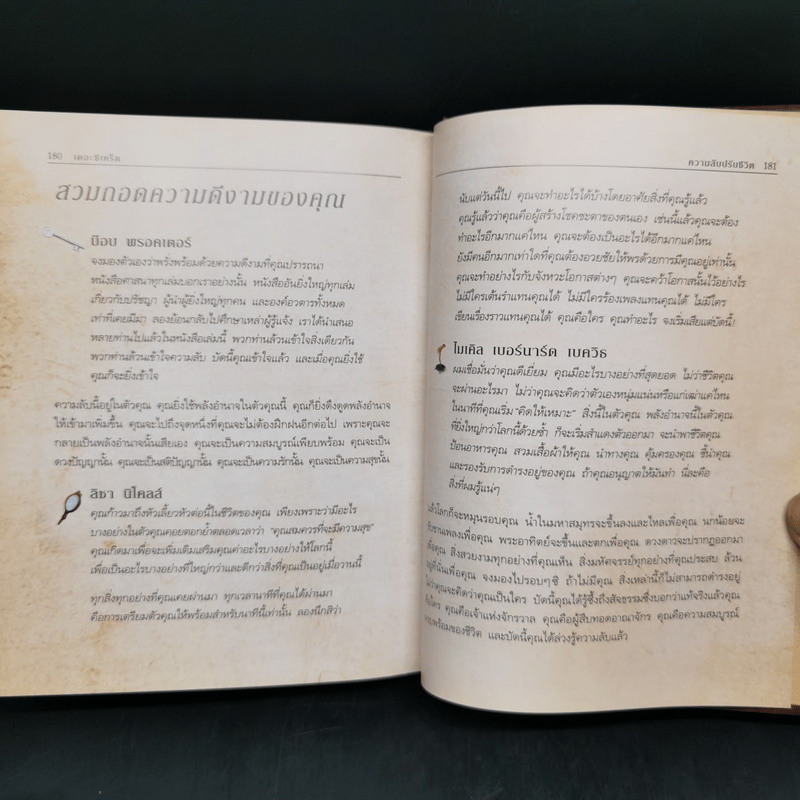 180 เดอะซีเคร็ต
สวมกอดความดีงามของคุณ
บ๊อบ พรอคเตอร์
จงมองตัวเองว่าพรั่งพร้อมด้วยความดีงามที่คุณปรารถนา
หนังสือศาสนาทุกเล่มบอกเราอย่างนั้น หนังสืออันยิ่งใหญ่ทุกเล่ม
เกี่ยวกับปรัชญา ผู้นำผู้ยิ่งใหญ่ทุกคน และองค์อวตารทั้งหมด
เท่าที่เคยมีมา ลองย้อนกลับไปศึกษาเหล่าผู้รู้แจ้ง เราได้นำเสนอ
หลายท่านไปแล้วในหนังสือเล่มนี้ พวกท่านล้วนเข้าใจสิ่งเดียวกัน
พวกท่านล้วนเข้าใจความลับ บัดนี้คุณเข้าใจแล้ว และเมื่อคุณยิ่งใช้
คุณก็จะยิ่งเข้าใจ
ความลับนี้อยู่ในตัวคุณ คุณยิ่งใช้พลังอำนาจในตัวคุณนี้ คุณก็ยิ่งดึงดูดพลังอำนาจ
ให้เข้ามาเพิ่มขึ้น คุณจะไปถึงจุดหนึ่งที่คุณจะไม่ต้องฝึกฝนอีกต่อไป เพราะคุณจะ
กลายเป็นพลังอำนาจนั้นเสียเอง คุณจะเป็นความสมบูรณ์เพียบพร้อม คุณจะเป็น
ดวงปัญญานั้น คุณจะเป็นสติปัญญานั้น คุณจะเป็นความรักนั้น คุณจะเป็นความสุขนั้น
ลิซา นิโคลส์
คุณก้าวมาถึงหัวเลี้ยวหัวต่อนี้ในชีวิตของคุณ เพียงเพราะว่ามีอะไร
บางอย่างในตัวคุณคอยตอกย้ำตลอดเวลาว่า "คุณสมควรที่จะมีความสุข"
คุณเกิดมาเพื่อจะเพิ่มเติมเสริมคุณค่าอะไรบางอย่างให้โลกนี้
เพื่อเป็นอะไรบางอย่างที่ใหญ่กว่าและดีกว่าสิ่งที่คุณเป็นอยู่เมื่อวานนี้
ทุกสิ่งทุกอย่างที่คุณเคยผ่านมา ทุกเวลานาทีที่คุณได้ผ่านมา
คือการเตรียมตัวคุณให้พร้อมสำหรับนาทีนี้เท่านั้น ลองนึกสิว่า
ความลับปรับชีวิต 181
นับแต่วันนี้ไป คุณจะทำอะไรได้บ้างโดยอาศัยสิ่งที่คุณรู้แล้ว
คุณรู้แล้วว่าคุณคือผู้สร้างโชคชะตาของตนเอง เช่นนี้แล้วคุณจะต้อง
ทำอะไรอีกมากแค่ไหน คุณจะต้องเป็นอะไรได้อีกมากแค่ไหน
ยังมีคนอีกมากเท่าใดที่คุณต้องอวยชัยให้พรด้วยการมีคุณอยู่เท่านั้น
คุณจะทำอย่างไรกับจังหวะโอกาสต่างๆ คุณจะคว้าโอกาสนั้นไว้อย่างไร
ไม่มีใครเต้นรำแทนคุณได้ ไม่มีใครร้องเพลงแทนคุณได้ ไม่มีใคร
เขียนเรื่องราวแทนคุณได้ คุณคือใคร คุณทำอะไร จงเริ่มเสียแต่บัดนี้!
ไมเคิล เบอร์นาร์ด เบควิธ
ผมเชื่อมั่นว่าคุณดีเยี่ยม คุณมีอะไรบางอย่างที่สุดยอด ไม่ว่าชีวิตคุณ
จะผ่านอะไรมา ไม่ว่าคุณจะคิดว่าตัวเองหนุ่มแน่นหรือแก่เฒ่าแค่ไหน
ในนาทีที่คุณเริ่ม "คิดให้เหมาะ" สิ่งนี้ในตัวคุณ พลังอำนาจนี้ในตัวคุณ
ที่ยิ่งใหญ่กว่าโลกนี้ด้วยซ้ำ ก็จะเริ่มสำแดงตัวออกมา จะนำพาชีวิตคุณ
ป้อนอาหารคุณ สวมเสื้อผ้าให้คุณ นำทางคุณ คุ้มครองคุณ ชี้นำคุณ
และรองรับการดำรงอยู่ของคุณ ถ้าคุณอนุญาตให้มันทำ นี่ละคือ
สิ่งที่ผมรู้แน่ๆ
แล้วโลกก็จะหมุนรอบคุณ น้ำในมหาสมุทรจะขึ้นลงและไหลเพื่อคุณ นกน้อยจะ
ขับขานเพลงเพื่อคุณ พระอาทิตย์จะขึ้นและตกเพื่อคุณ ดวงดาวจะปรากฏออกมา
เพื่อคุณ สิ่งสวยงามทุกอย่างที่คุณเห็น สิ่งมหัศจรรย์ทุกอย่างที่คุณประสบ ล้วน
อยู่ที่นั่นเพื่อคุณ จงมองไปรอบๆซิ ถ้าไม่มีคุณ สิ่งเหล่านี้ก็ไม่สามารถดำรงอยู่
ไม่ว่าคุณจะคิดว่าคุณเป็นใคร บัดนี้คุณได้รู้ซึ้งถึงสัจธรรมซึ่งบอกว่าแท้จริงแล้วคุณ
คือใคร คุณคือเจ้าแห่งจักรวาล คุณคือผู้สืบทอดอาณาจักร คุณคือความสมบูรณ์
เพียบพร้อมของชีวิต และบัดนี้คุณได้ล่วงรู้ความลับแล้ว